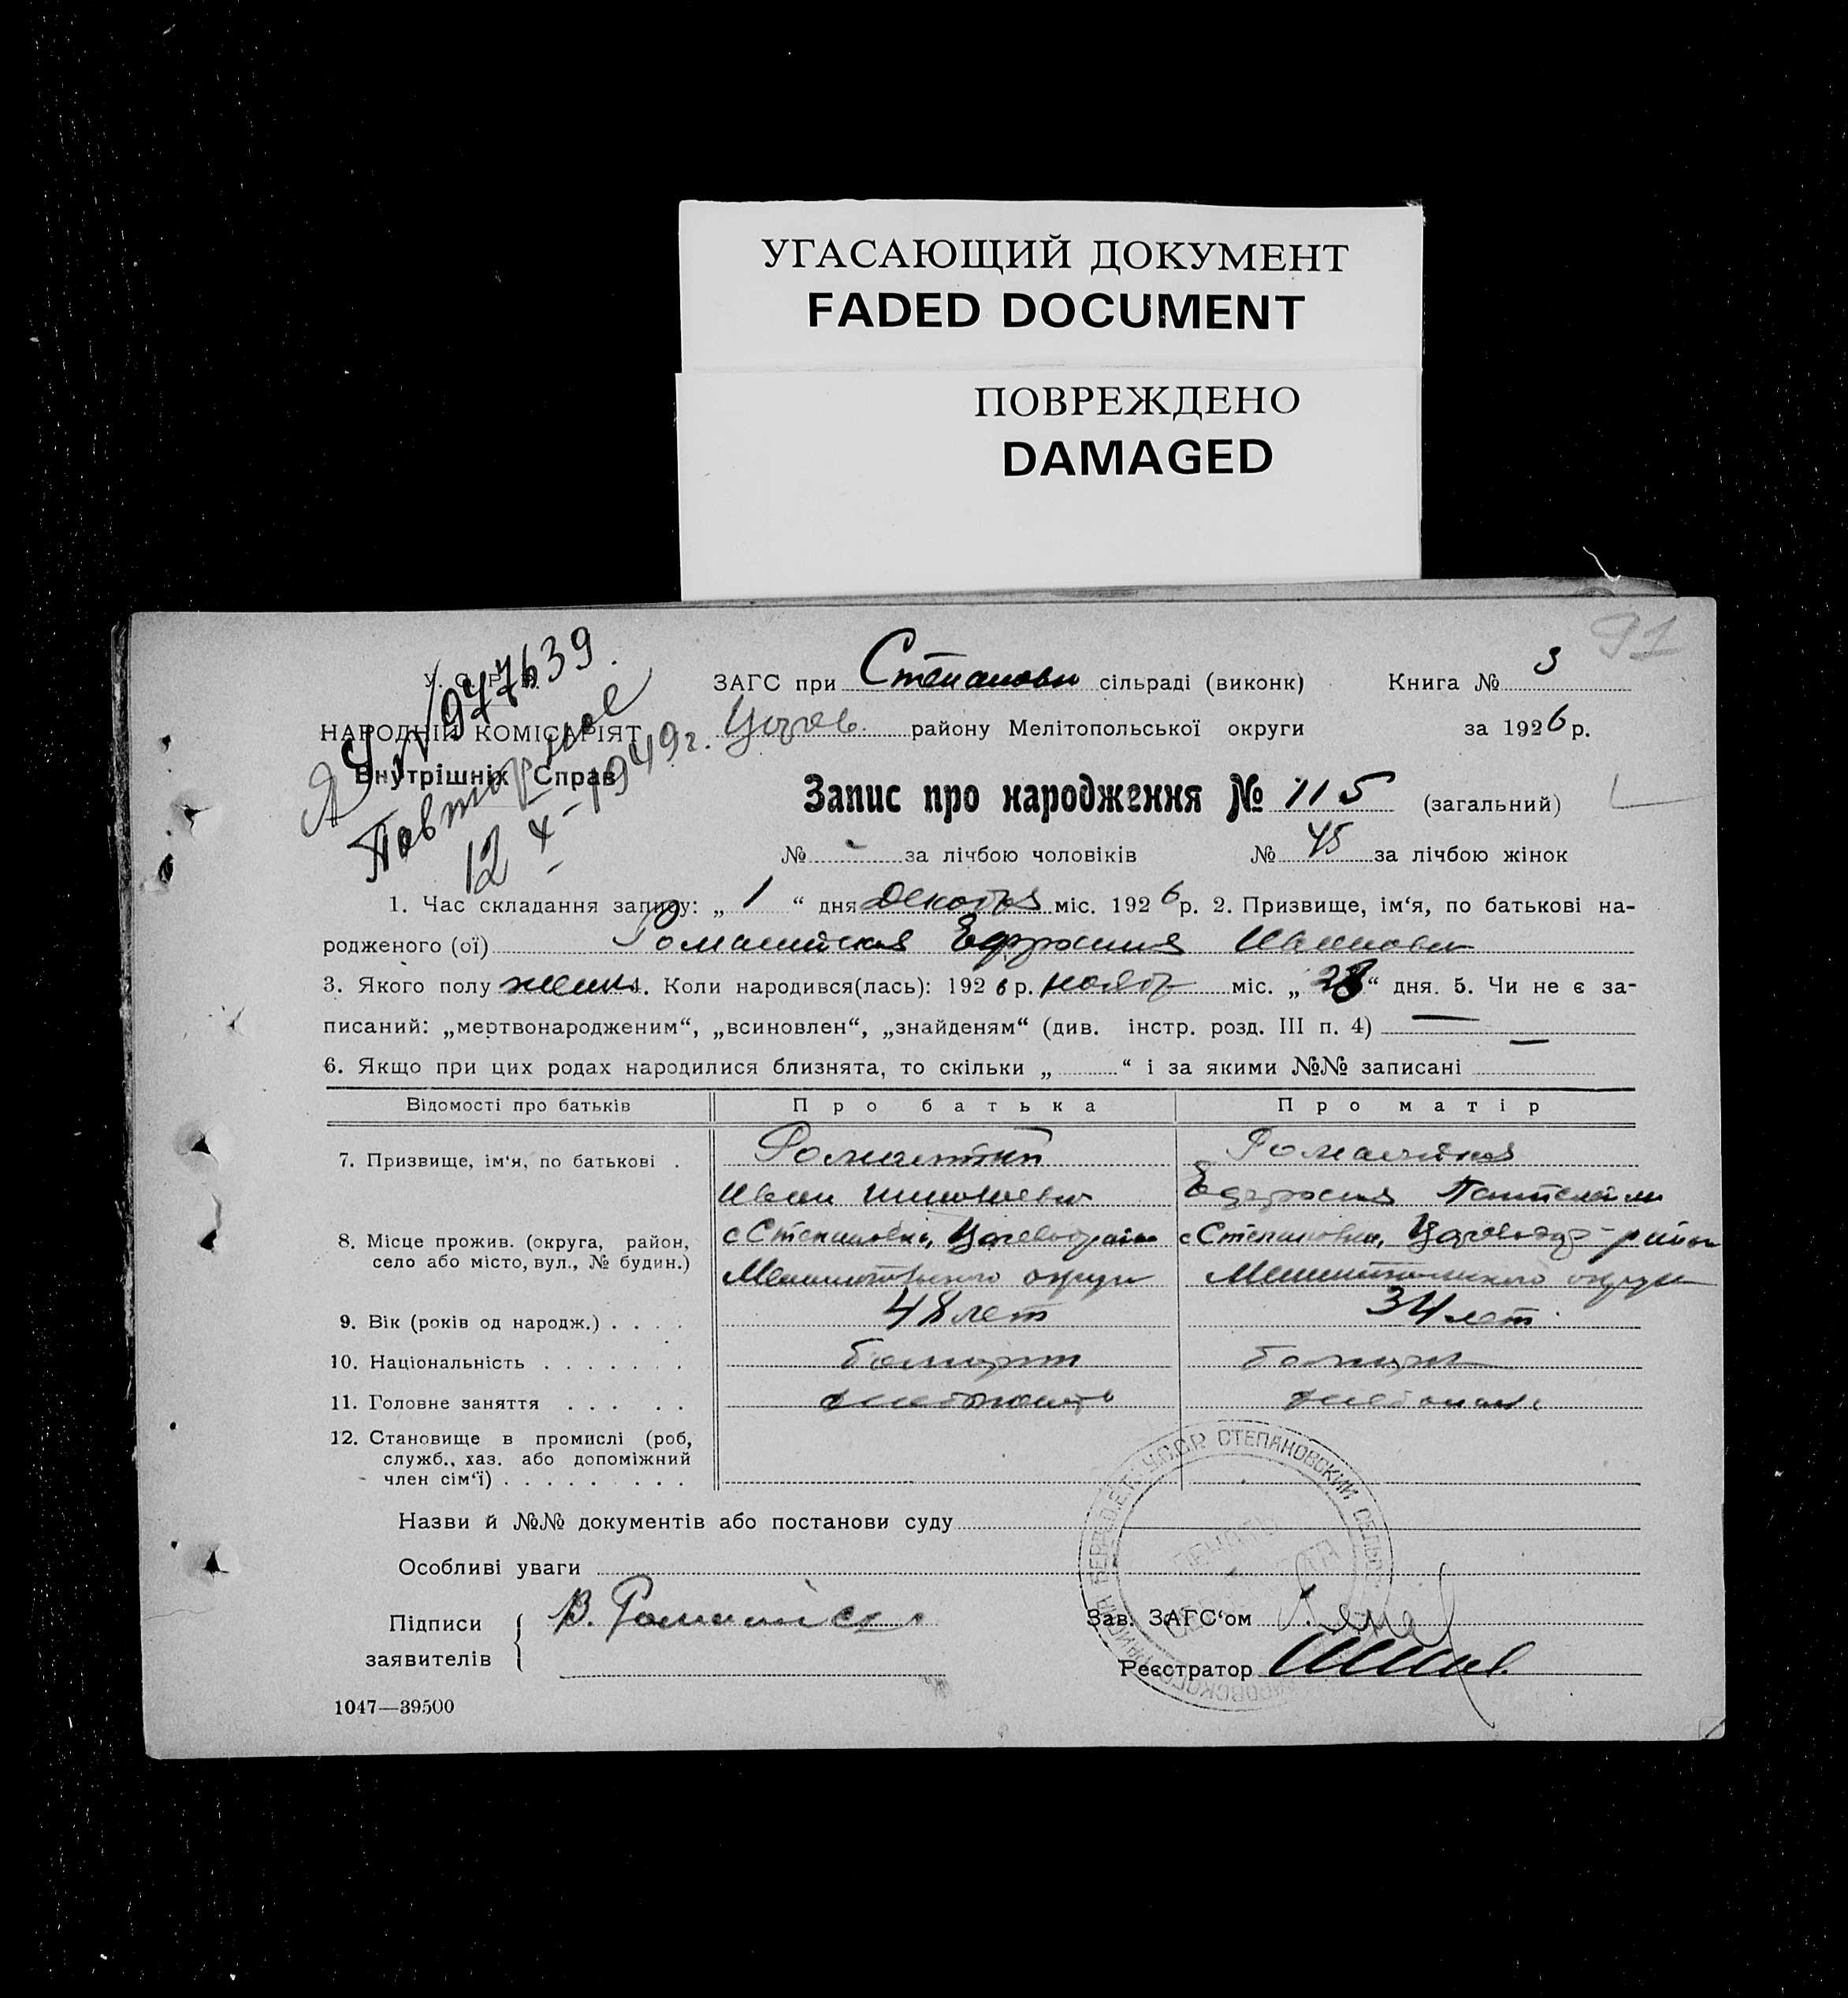 УГАСАЮЩИЙ ДОКУМЕНТ
FADED DOCUMENT
ПОВРЕЖДЕНО
DAMAGED
91
У. С. Р. Р.
НАРОДНІЙ КОМІСАРІЯТ
Внутрішніх Справ
ЯЧ № 947639.
Повторное
12 X-1949г.
ЗАГС при Степановк сільраді (виконк) Книга № 3
Цозев. району Мелітопольської округи за 1926 р.
Запис про народження № 115 (загальний)
№ - за лічбою чоловіків № 45 за лічбою жінок
1. Час складання запису: „ 1 “ дня Декабря міс. 1926 р. 2. Призвище, ім‘я, по батькові на-
родженого (ої) Ефросиния Ивановн
3. Якого полу женс 4. Коли народився(лась): 1926 р. нояб міс. „ 28 “ дня. 5. Чи не є за-
писаний: „мертвонародженим“, „всиновлен“, „знайденям“ (див. інстр. розд. III п. 4) —
6. Якщо при цих родах народилися близнята, то скільки „ “ і за якими №№ записані —
Відомості про батьків Про батька Про матір
7. Призвище, ім‘я, по батькові .
Иван Ефросиния Пантелейм
8. Місце прожив. (округа, район, с Степановка, с Степановка, район
село або місто, вул., № будин.) Мелитопольского округа Мелитопольского округа
9. Вік (років од народж.) . . . . 48 лет 34 лет
10. Національність . . . . . . . болгарин болгарк
11. Головне заняття . . . . . хлебопашец
12. Становище в промислі (роб,
служб., хаз. або допоміжний
член сім‘ї) . . . . . . . . .
Назви й №№ документів або постанови суду
Особливі уваги
Підписи
заявителів
В.
Зав. ЗАГС‘ом
Реєстратор
У.С.С.Р. СТЕПАНОВСКИЙ СЕЛЬ
1047—39500